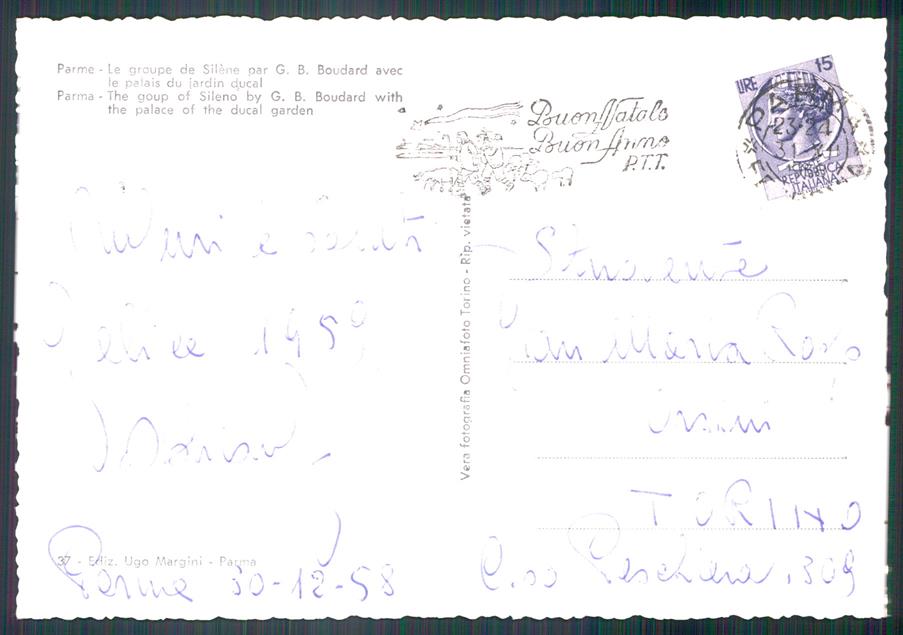 Parme - Le groupe de Silène par G. B. Boudard avec
le palais du jardin ducal
Parma - The goup of Sileno by G. B. Boudard with
the palace of the ducal garden
Buon Natale
Buon Anno
P.T.T.
LIRE 15
PARMA
23-24
31 XII
REPUBBLICA
ITALIANA
Auguri
Felice 1959
Vera fotografia Omniafoto Torino - Rip. vietata
Studente
Gian Maria Rosso
TORINO
C.so Peschiera 309
37 - Ediz. Ugo Margini - Parma
Parma 30-12-58